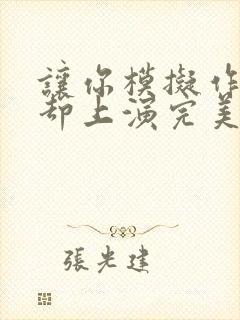 讓你模擬作
却上演完美
張光建